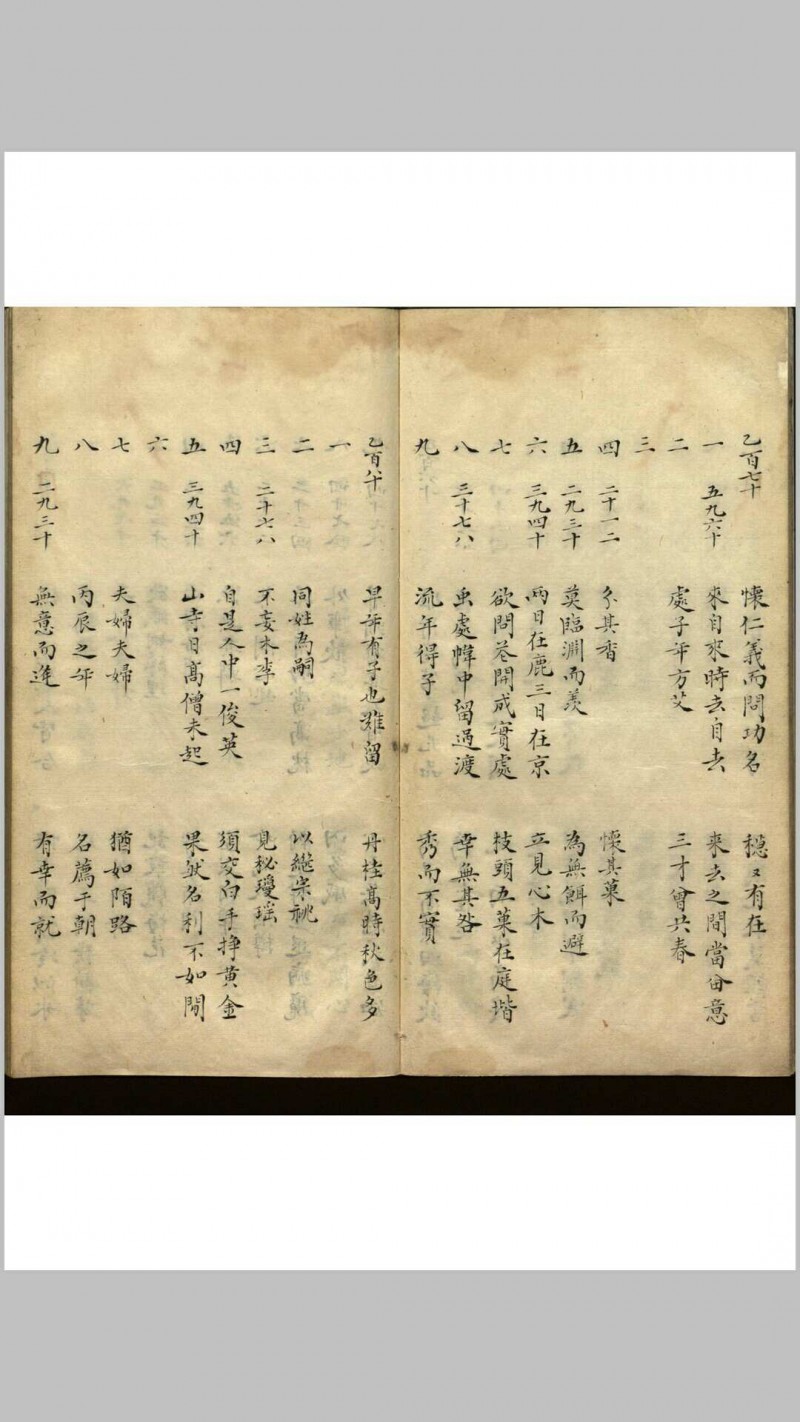 乙百七十 懷仁義而問功名 穩〻有在
一 五九六十 來自來時去自去 来去之間當留意
二 處子年方艾 三才曾共春
三
四 二十一二 分其香 懷其菓
五 二九三十 莫臨淵而羨 為無餌而避
六 三九四十 兩日在鹿三日在京 立見心木
七 欲問巷開成實處 枝頭五菓在庭堦
八 三十七八 虫處幃中留過渡 幸無其咎
九 流年得子 秀而不實
乙百八十 早年有子也難留 丹桂髙時秋色多
一
二 同姓為嗣 以繼宗祧
三 二十七八 不妄木李 見秘瓊瑶
四 自是人中一俊英 須交白手挣黄金
五 三九四十 山寺日髙僧未起 果然名利不如閒
六
七 夫婦夫婦 猶如陌路
八 丙辰之年 名薦于朝
九 二九三十 無意而逢 有幸而就